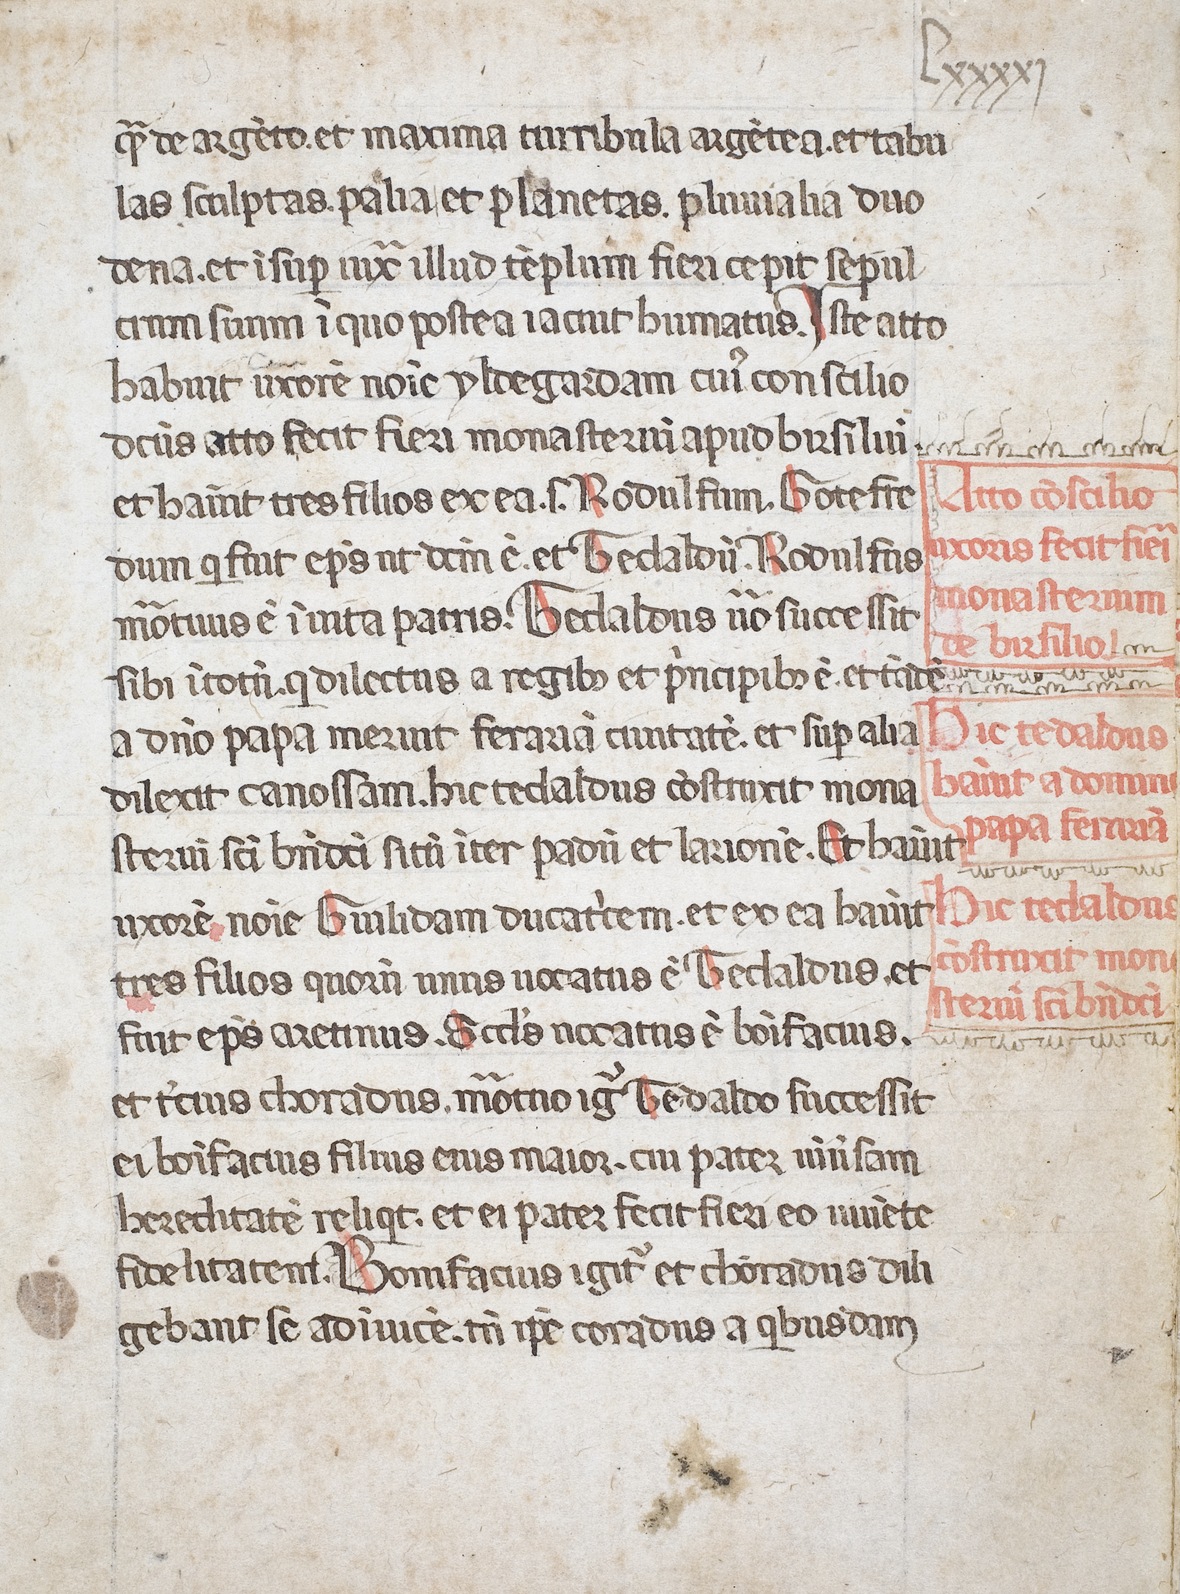 Lxxxxi
q̄ de argēto. et maxima turribula argētea. et tabu
las scculptas. palia et planetas. pluuialia duo
dena. et īsuꝑ iux̄ illud tēplum fieri cepit sepul
crum suum ī quo postea iacuit humatus. Iste atto
habuit uxorē noīe yldegardam cuiꝰ conscilio
dc̄us atto fecit fieri monasteriū apud birsiluū.
et hāuit tres filios ex ea. s. Rodulfum. Gotefre
dum q̇ fuit ep̄s ut dcm̄ ē. et Tedaldū. Rodulfus
mōtuus ē ī uita patris. Tedaldus ūo successit
sibi ī totū. q̇ dilectus a regibꝫ et p̄ncipibꝫ ē. et tādē
a dn̄o papa meruit ferariā ciuitatē. et suꝑ alia
dilexit canossam. hic tedaldus cōstruxit mona
steriū sc̄i bn̄dc̄i sitū īter padū et larionē. Et hāuit
uxorē noīe Guilidam ducatcem. et ex ea hāuit
tres filios quorū unus uocatus ē Tedaldus. et
fuit ep̄s aretinus. Sccd̄s uocatus ē boīfacius.
et t̄cius choradus. mōtuo ig̊ Tedaldo successit
ei boīfacius filius eius maior. cui pater uniūsam
hereditatē reliqt. et ei pater fecit fieri eo uiuēte
fidelitatem. Bonifacius igitꝰ et chōradus dili
gebant se adīuicē. tn̄ ip̄e coradus a qbusdam
Atto cōscilio
uxoris fecit fieī
monasterium
de birsilio
Hic tedaldus
hāuit a domin
papa ferariā
Hic tedaldus
cōstruxit mon
steriū sc̄i bn̄dc̄i